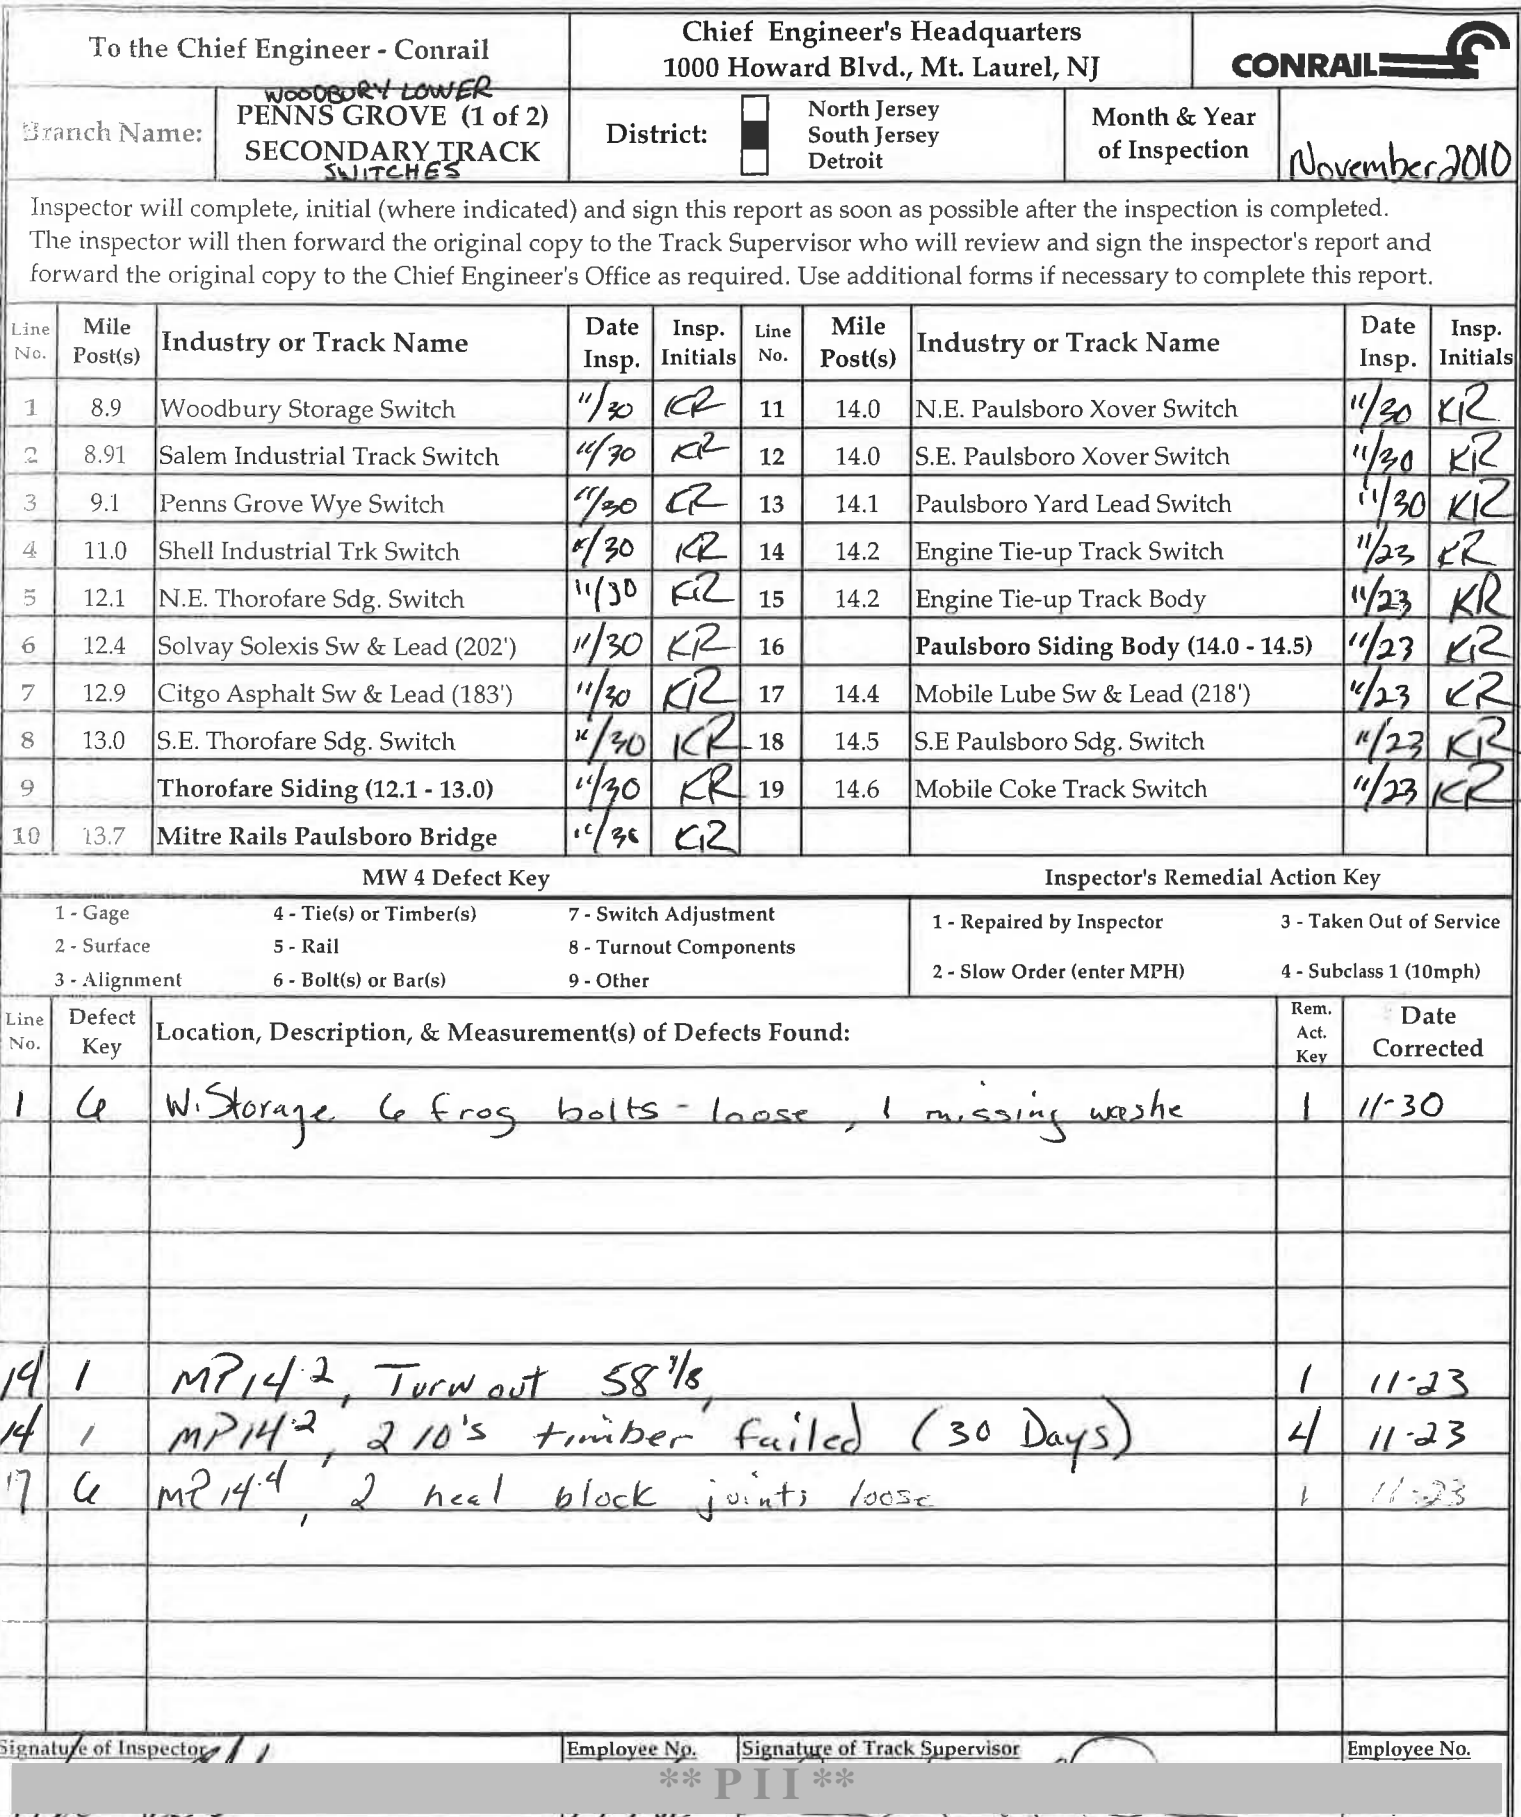 To the Chief Engineer - Conrail
Chief Engineer's Headquarters
1000 Howard Blvd., Mt. Laurel, NJ
CONRAIL
Branch Name:
WOODBURY LOWER
PENNS GROVE (1 of 2)
SECONDARY TRACK
SWITCHES
District:
North Jersey
South Jersey
Detroit
Month & Year
of Inspection
November 2010
Inspector will complete, initial (where indicated) and sign this report as soon as possible after the inspection is completed.
The inspector will then forward the original copy to the Track Supervisor who will review and sign the inspector's report and
forward the original copy to the Chief Engineer's Office as required. Use additional forms if necessary to complete this report.
Line No. Mile Post(s) Industry or Track Name Date Insp. Insp. Initials Line No. Mile Post(s) Industry or Track Name Date Insp. Insp. Initials
1 8.9 Woodbury Storage Switch 11/30 KR 11 14.0 N.E. Paulsboro Xover Switch 11/30 KR
2 8.91 Salem Industrial Track Switch 11/30 KR 12 14.0 S.E. Paulsboro Xover Switch 11/30 KR
3 9.1 Penns Grove Wye Switch 11/30 KR 13 14.1 Paulsboro Yard Lead Switch 11/30 KR
4 11.0 Shell Industrial Trk Switch 11/30 KR 14 14.2 Engine Tie-up Track Switch 11/23 KR
5 12.1 N.E. Thorofare Sdg. Switch 11/30 KR 15 14.2 Engine Tie-up Track Body 11/23 KR
6 12.4 Solvay Solexis Sw & Lead (202') 11/30 KR 16 Paulsboro Siding Body (14.0 - 14.5) 11/23 KR
7 12.9 Citgo Asphalt Sw & Lead (183') 11/30 KR 17 14.4 Mobile Lube Sw & Lead (218') 11/23 KR
8 13.0 S.E. Thorofare Sdg. Switch 11/30 KR 18 14.5 S.E Paulsboro Sdg. Switch 11/23 KR
9 Thorofare Siding (12.1 - 13.0) 11/30 KR 19 14.6 Mobile Coke Track Switch 11/23 KR
10 13.7 Mitre Rails Paulsboro Bridge 11/30 KR
MW 4 Defect Key Inspector's Remedial Action Key
1 - Gage 4 - Tie(s) or Timber(s) 7 - Switch Adjustment 1 - Repaired by Inspector 3 - Taken Out of Service
2 - Surface 5 - Rail 8 - Turnout Components
3 - Alignment 6 - Bolt(s) or Bar(s) 9 - Other 2 - Slow Order (enter MPH) 4 - Subclass 1 (10mph)
Line No. Defect Key Location, Description, & Measurement(s) of Defects Found: Rem. Act. Key Date Corrected
1 6 W. Storage 6 frog bolts - loose, 1 missing washe 1 11-30
14 1 MP 14.2, Turnout 58 1/8, 1 11-23
14 1 MP 14.2, 2 10's timber failed (30 Days) 4 11-23
17 6 MP 14.4, 2 heal block joints loose 1 11-23
Signature of Inspector Employee No. Signature of Track Supervisor Employee No.
** P I I **